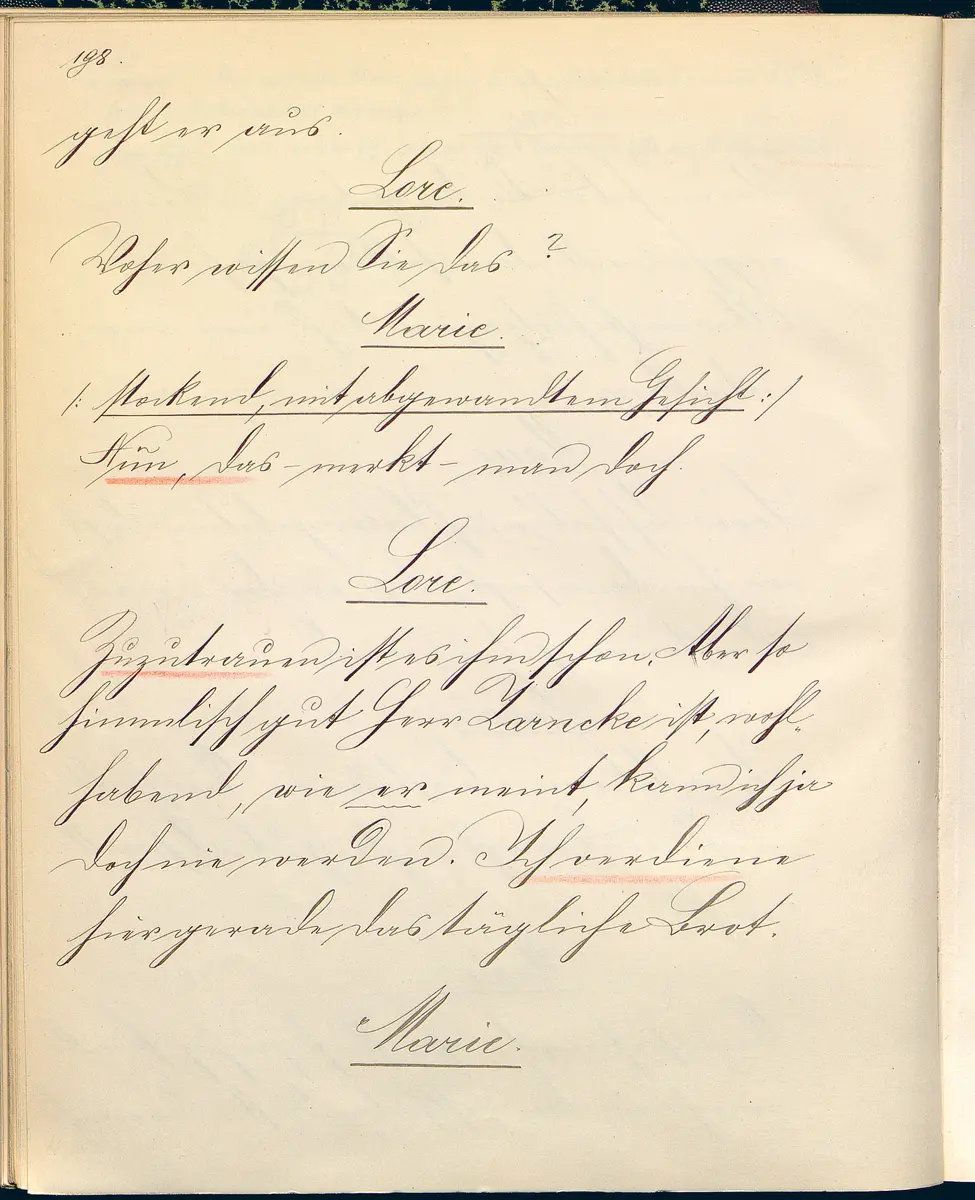 198.
geht er aus.
Lore.
Woher wissen Sie das?
Marie.
/: stockend, mit abgewandtem Gesicht :/
Nun, das – merkt – man doch.
Lore.
Zuzutrauen ist es ihm schon. Aber so
himmlisch gut Herr Zarncke ist, wohl-
habend, wie er meint, kann ich ja
doch nie werden. Ich verdiene
hier gerade das tägliche Brot.
Marie.